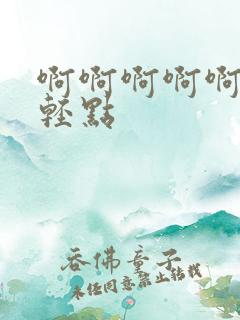 啊啊啊啊啊
輕點
吞佛童子
未經同意禁止轉載